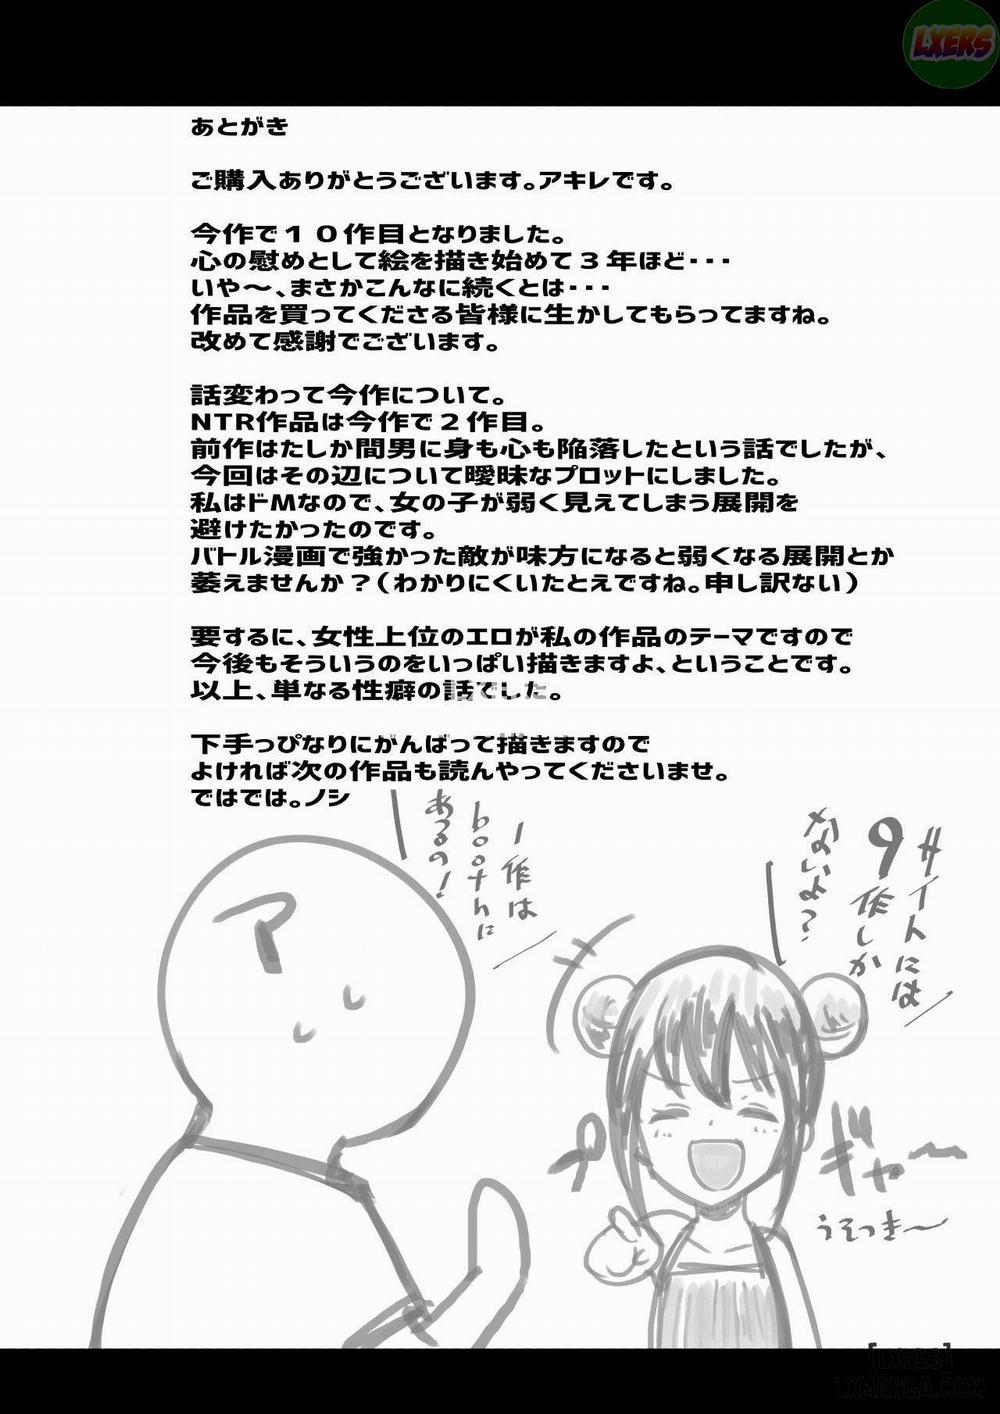 LXERS
あとがき
ご購入ありがとうございます。アキレです。
今作で１０作目となりました。
心の慰めとして絵を描き始めて３年ほど・・・
いや～、まさかこんなに続くとは・・・
作品を買ってくださる皆様に生かしてもらってますね。
改めて感謝でございます。
話変わって今作について。
NTR作品は今作で２作目。
前作はたしか間男に身も心も陥落したという話でしたが、
今回はその辺について曖昧なプロットにしました。
私はドMなので、女の子が弱く見えてしまう展開を
避けたかったのです。
バトル漫画で強かった敵が味方になると弱くなる展開とか
萎えませんか？（わかりにくいたとえですね。申し訳ない）
要するに、女性上位のエロが私の作品のテーマですので
今後もそういうのをいっぱい描きますよ、ということです。
以上、単なる性癖の話でした。
下手っぴなりにがんばって描きますので
よければ次の作品も読んやってくださいませ。
ではでは。ノシ
サイトには
９作しか
ないよ？
１作は
boothに
あるの！
ア
プ
ギャー
うそつき～
[LXERS]
LXMANGA.COM